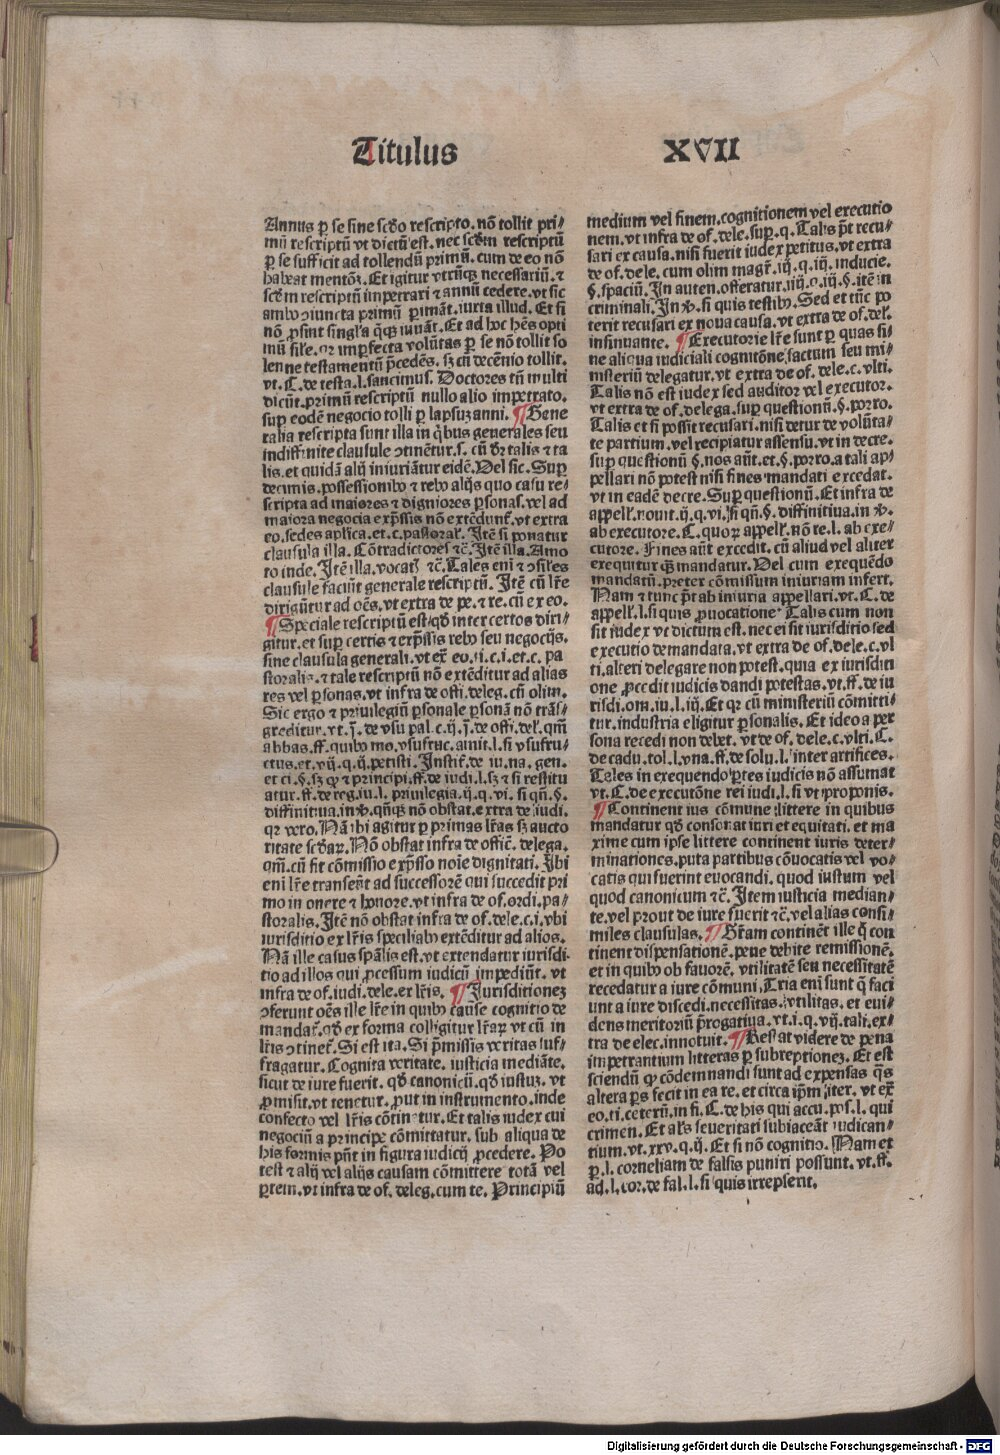 Titulus XVII
Annus ꝑ se sine scḋo rescripto. nō tollit pri⸗
mū rescriptū vt dictū est. nec scḋm rescriptū
ꝑ se sufficit ad tollendū primū. cum de eo nō
habeat mentōꝫ. Et igitur vtrūqꝫ necessariū. ⁊
scḋm rescriptū impetrari ⁊ annū cedere. vt sic
ambo ɔiuncta primū ꝑimāt. iuxta illud. Et si
nō ꝓsint singl'a q̄qꝫ iuuāt. Et ad hoc hēs opti
mū sil'e. qr imꝑfecta volūtas ꝑ se nō tollit so
lenne testamentū p̄cedēs. sꝫ cū decēnio tollit.
vt. C. de testa. l. sancimus. Doctores tn̄ multi
dicūt. primū rescriptū nullo alio impetrato.
suꝑ eodē negocio tolli ꝑ lapsuꝫ anni. ¶ Gene
ralia rescripta sunt illa in q̇bus generales seu
indiffinite clausule ɔtinētur. s. cū dr̄ talis ⁊ ta
lis. et quidā alij iniuriātur eidē. Vel sic. Suꝑ
decimis. possessionibꝰ ⁊ rebꝰ alijs quo casu re⸗
scripta ad maiores ⁊ digniores ꝑsonas. vel ad
maiora negocia exp̄ssis nō extēdunt̄. vt extra
eo. sedes apl'ica. et. c. pastoral'. Itē si ponatur
clausula illa. Cōtradictores ⁊c̄. Itē illa. Amo
to inde. Itē illa. vocat̄ ⁊c̄. Tales eni ⁊ ɔsil'es
clausule faciūt generale rescriptū. Itē cū lr̄e
dirigūtur ad oēs. vt extra de pe. ⁊ re. cū ex eo.
¶ Speciale rescriptū est qḋ inter certos diri⸗
gitur. et suꝑ certis ⁊ exp̄ssis rebꝰ seu negocijs.
sine clausula generali. vt ex̄ eo. ti. c. i. et. c. pa
storalis. ⁊ tale rescriptū nō extēditur ad alias
res vel ꝑsonas. vt infra de offi. deleg. cū olim.
Sic ergo ⁊ priuilegiū ꝑsonale ꝑsonā nō trās⸗
greditur. vt. j. de vsu pal. c. ij. j. de offi. del'. qm̄
abbas. ff. quibꝰ mo. vsufruc. amit. l. si vsufru⸗
ctus. et. vij. q. ij. petisti. Instit̄. de iu. na. gen.
et ci. §. sꝫ qꝫ ⁊ principi. ff. de iudi. l. sꝫ ⁊ si restitu
atur. ff. de reg. iu. l. priuilegia. ij. q. vi. si qn̄. §.
diffinitiua. in ꝟ. qn̄qꝫ nō obstat. extra de iudi.
qr vero. Nā ibi agitur ꝑ primas lr̄as sꝫ aucto
ritate scḋaꝝ. Nō obstat infra de offic̄. delega.
qm̄. cū fit cōmissio exp̄sso noīe dignitati. Ibi
eni lr̄e transeūt ad successorē qui succedit pri
mo in onere ⁊ honore. vt infra de of. ordi. pa⸗
storalis. Itē nō obstat infra de of. dele. c. i. vbi
iurisditio ex lr̄is specialibꝰ extēditur ad alios.
Nā ille casus spālis est. vt extendatur iurisdi⸗
tio ad illos qui ꝓcessum iudicū impediūt. vt
infra de of. iudi. dele. ex lr̄is. ¶ Iurisditioneꝫ
ɔferunt oēs ille lr̄e in quibꝰ cause cognitio de
mandat̄. qḋ ex forma colligitur lr̄aꝝ vt cū in
lr̄is ɔtinet̄. Si est ita. Si p̄missis veritas suf⸗
fragatur. Cognita veritate. iusticia mediāte.
sicut de iure fuerit. qḋ canonicū. qḋ iustuꝫ. vt
ꝓmisit. vt tenetur. ꝓut in instrumento. inde
confecto vel lr̄is cōtinetur. Et talis iudex cui
negociū a principe cōmittatur. sub aliqua de
his formis pn̄t in figura iudicij ꝓcedere. Po
test ⁊ alij vel alijs causam cōmittere totā vel
ꝑtem. vt infra de of. deleg. cum te. Principiū
medium vel finem. cognitionem vel executio
nem. vt infra de of. dele. suꝑ. q. Talis pōt recu⸗
sari ex causa. nisi fuerit iudex petitus. vt extra
de of. dele. cum olim magr̄. iij. q. iij. inducie.
§. spaciū. In auten. offeratur. iij. q. iij. §. itē in
criminali. In ꝟ. si quis testibꝰ. Sed et tūc po
terit recusari ex noua causa. vt extra de of. del'.
insinuante. ¶ Executorie lr̄e sunt ꝑ quas si⸗
ne aliqua iudiciali cognitōne factum seu mi⸗
nisteriū delegatur. vt extra de of. dele. c. vlti.
Talis nō est iudex sed auditor vel executor.
vt extra de of. delega. suꝑ questionū. §. porro.
Talis et si possit recusari. nisi detur de volūta⸗
te partium. vel recipiatur assensu. vt in decre.
suꝑ questionū §. nos aūt. et. §. porro. a tali ap⸗
pellari nō potest nisi fines mandati excedat.
vt in eadē decre. Suꝑ questionū. Et infra de
appell'. nouit. ij. q. vi. si qn̄. §. diffinitiua. in ꝟ.
ab executore. C. quoꝝ appell'. nō re. l. ab exe⸗
cutore. Fines aūt excedit. cū aliud vel aliter
exequitur qꝫ mandatur. Vel cum exequēdo
mandatū. preter cōmissum iniuriam infert.
Nam ⁊ tunc pōt ab iniuria appellari. vt. C. de
appell'. l. si quis ꝓuocatione. Talis cum non
sit iudex vt dictum est. nec ei sit iurisditio sed
executio demandata. vt extra de of. dele. c. vl
ti. alteri delegare non potest. quia ex iurisditi
one ꝓcedit iudicis dandi potestas. vt. ff. de iu
risdi. om. iu. l. iij. Et qr cū ministeriū cōmitti⸗
tur. industria eligitur ꝑsonalis. Et ideo a per
sona recedi non debet. vt de of. dele. c. vlti. C.
de cadu. tol. l. vna. ff. de solu. l. inter artifices.
Tales in exequendo ꝑtes iudicis nō assumat
vt. C. de executōne rei iudi. l. si vt proponis.
¶ Continent ius cōmune littere in quibus
mandatur qḋ consonat iuri et equitati. et ma
xime cum ipse littere continent iuris deter⸗
minationes. puta partibus cōuocatis vel vo⸗
catis qui fuerint euocandi. quod iustum vel
quod canonicum ⁊c̄. Item iusticia median⸗
te. vel prout de iure fuerit ⁊c̄. vel alias consi⸗
miles clausulas. ¶ Gr̄am continēt ille q̄ con
tinent dispensationē. pene debite remissionē.
et in quibꝰ ob fauorē. vtilitatē seu necessitatē
recedatur a iure cōmuni. Tria eni sunt q̄ faci
unt a iure discedi. necessitas. vtilitas. et eui⸗
dens meritoriū p̄rogatiua. vt. i. q. vij. tali. ex⸗
tra de elec. innotuit. ¶ Restat videre de pena
impetrantium litteras ꝑ subreptioneꝫ. Et est
sciendū qꝫ cōdemnandi sunt ad expensas q̄s
altera ꝑs fecit in ea re. et circa ip̄m iter. vt ex̄
eo. ti. ceterū. in fi. C. de his qui accu. pos. l. qui
crimen. Et al's seueritati subiaceāt iudican⸗
tium. vt. xxv. q. ij. Et si nō cognitio. Nam et
ꝑ. l. corneliam de falsis puniri possunt. vt. ff.
ad. l. cor. de fal. l. si quis irrepserit.
Digitalisierung gefördert durch die Deutsche Forschungsgemeinschaft - DFG